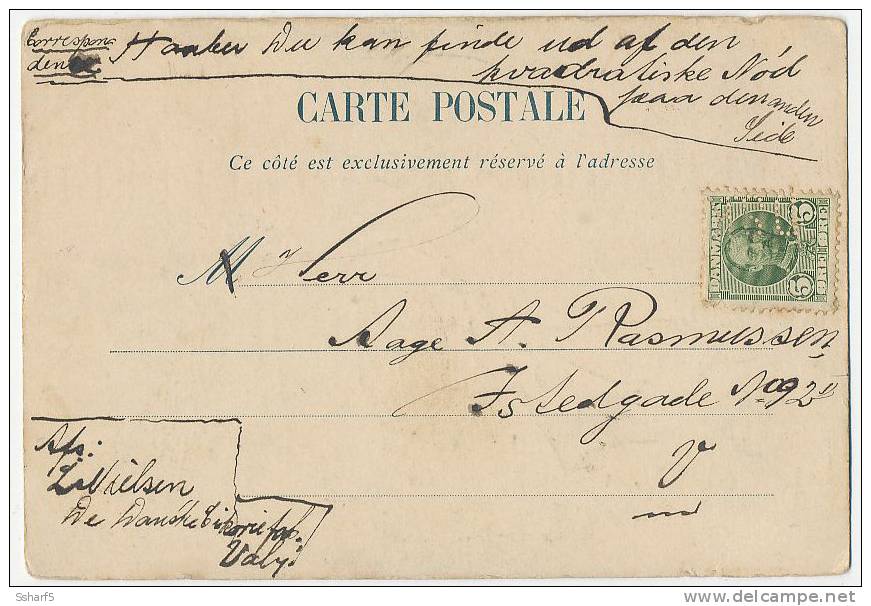 Correspon
dence
Haaber Du kan finde ud af den
kvadratiske Nöd
paa den anden
Side
CARTE POSTALE
Ce côté est exclusivement réservé à l'adresse
DANMARK
5 ØRE
5 ØRE
M Herr
Aage A. Rasmussen,
Istedgade No 92
V
Afs:
L. Nielsen
De Danske Cikoriefab.
Valby.
Ssharf5
delcampe.net